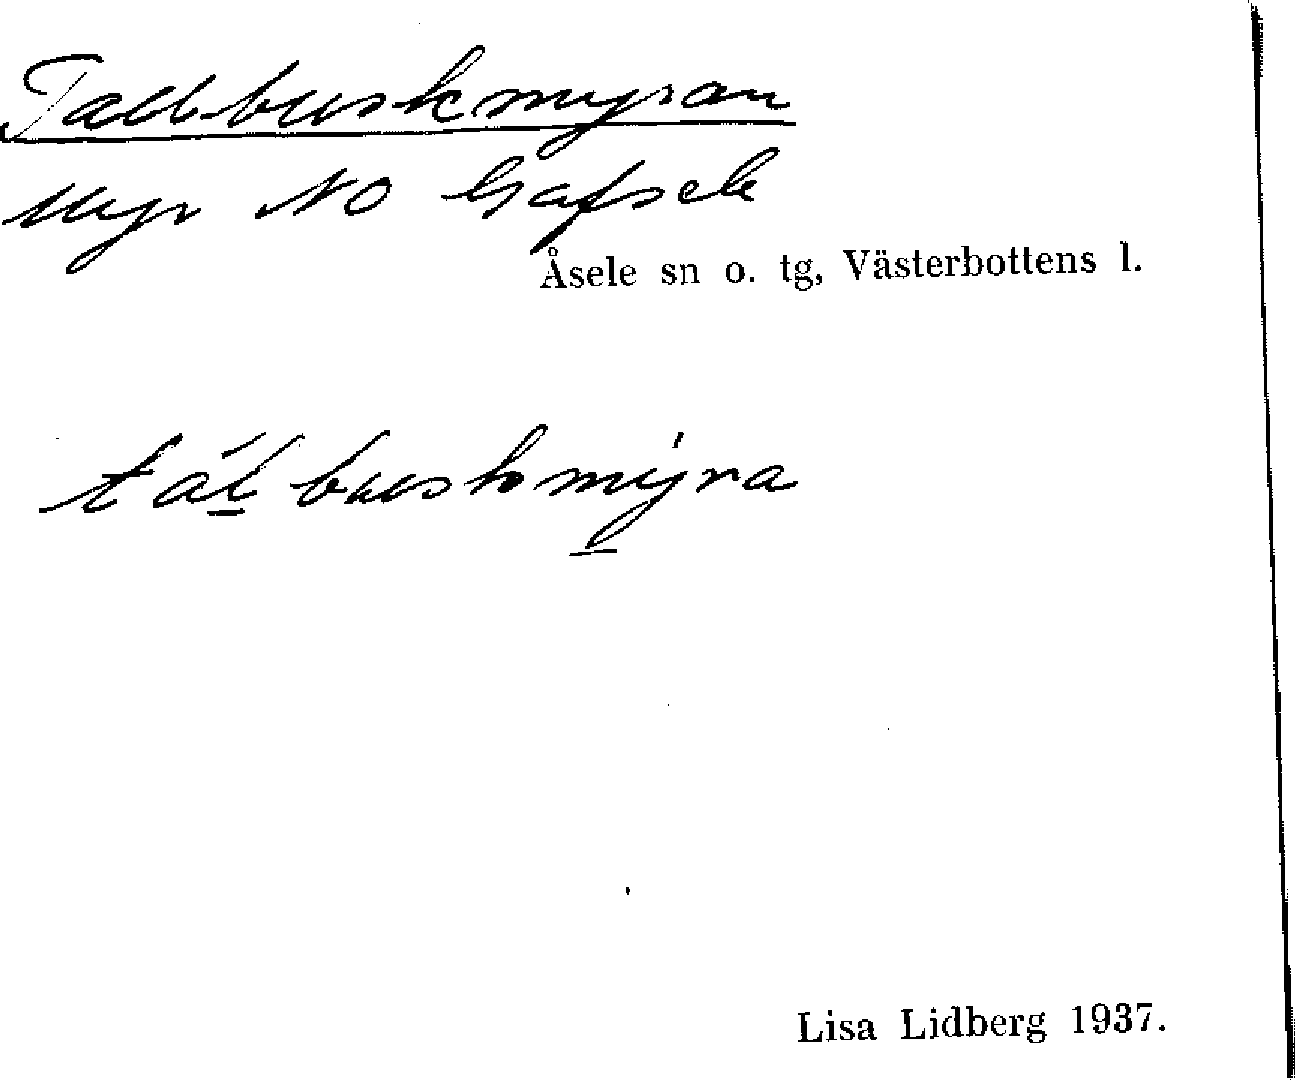 Tallbuskmyran
Myr NO Gafsele
Åsele sn o. tg, Västerbottens l.
tál̲buskmy̲̍ra
Lisa Lidberg 1937.